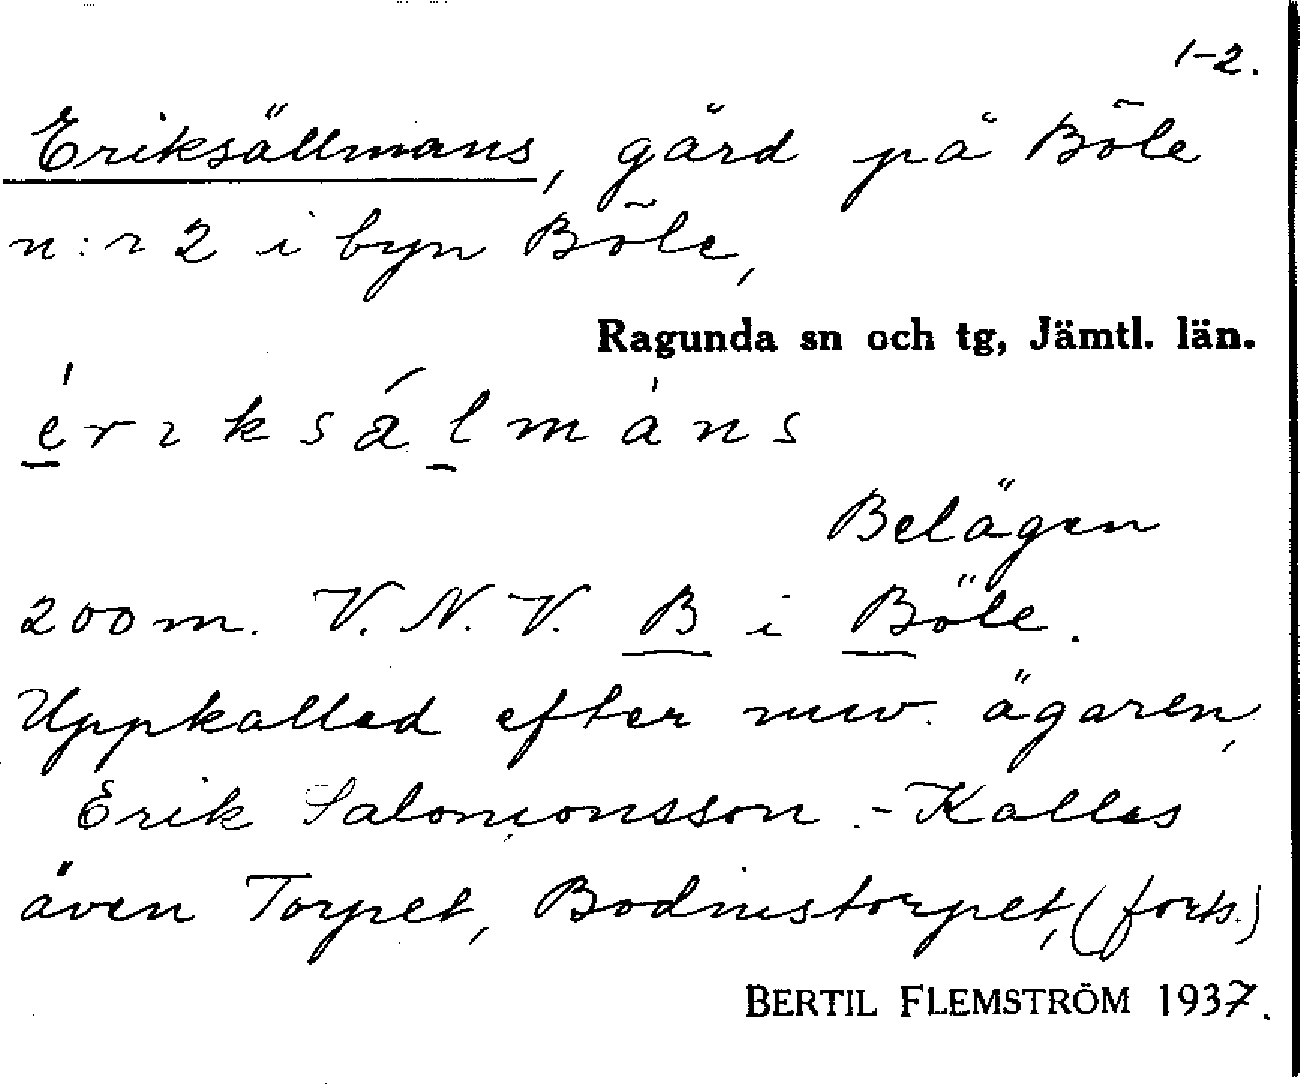 1-2.
Eriksällmans, gård på Böle
n:r 2 i byn Böle,
Ragunda sn och tg, Jämtl. län.
e̲riksál̲máns
Belägen
200 m. V.N.V. B i Böle.
Uppkallad efter nuv. ägaren,
Erik Salomonsson. - Kallas
även Torpet, Bodnistorpet, (forts.)
BERTIL FLEMSTRÖM 1937.